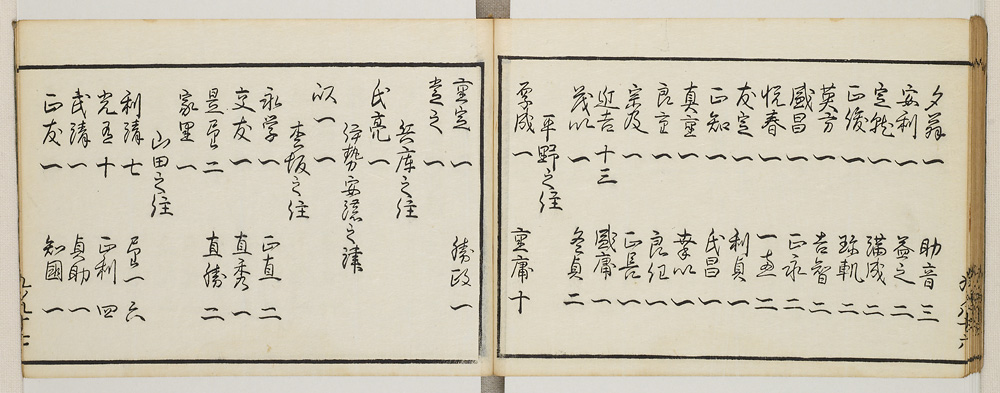 夕翁 一 助音 三
安利 一 益之 二
定 一 満成 二
正俊 一 軌 二
英方 一 吉智 二
盛昌 一 正永 二
悦春 一 一直 二
友定 一 利貞 一
正知 一 氏昌 一
真重 一 以 一
良重 一 良 一
宗及 一 正長 一
近吉 十三 庸 一
茂以 一 冬貞 二
平野之住
厚成 一 重庸 十
重定 一 勝政 一
之 一
兵庫之住
氏亮 一
伊勢安濃之津
以一 一
坂之住
永学 一 正直 二
玄友 一 直秀 一
二 直勝 二
家里 一
山田之住
利清 七 一 六
光吉 十 正利 四
武清 一 貞助 一
正友 一 知國 一